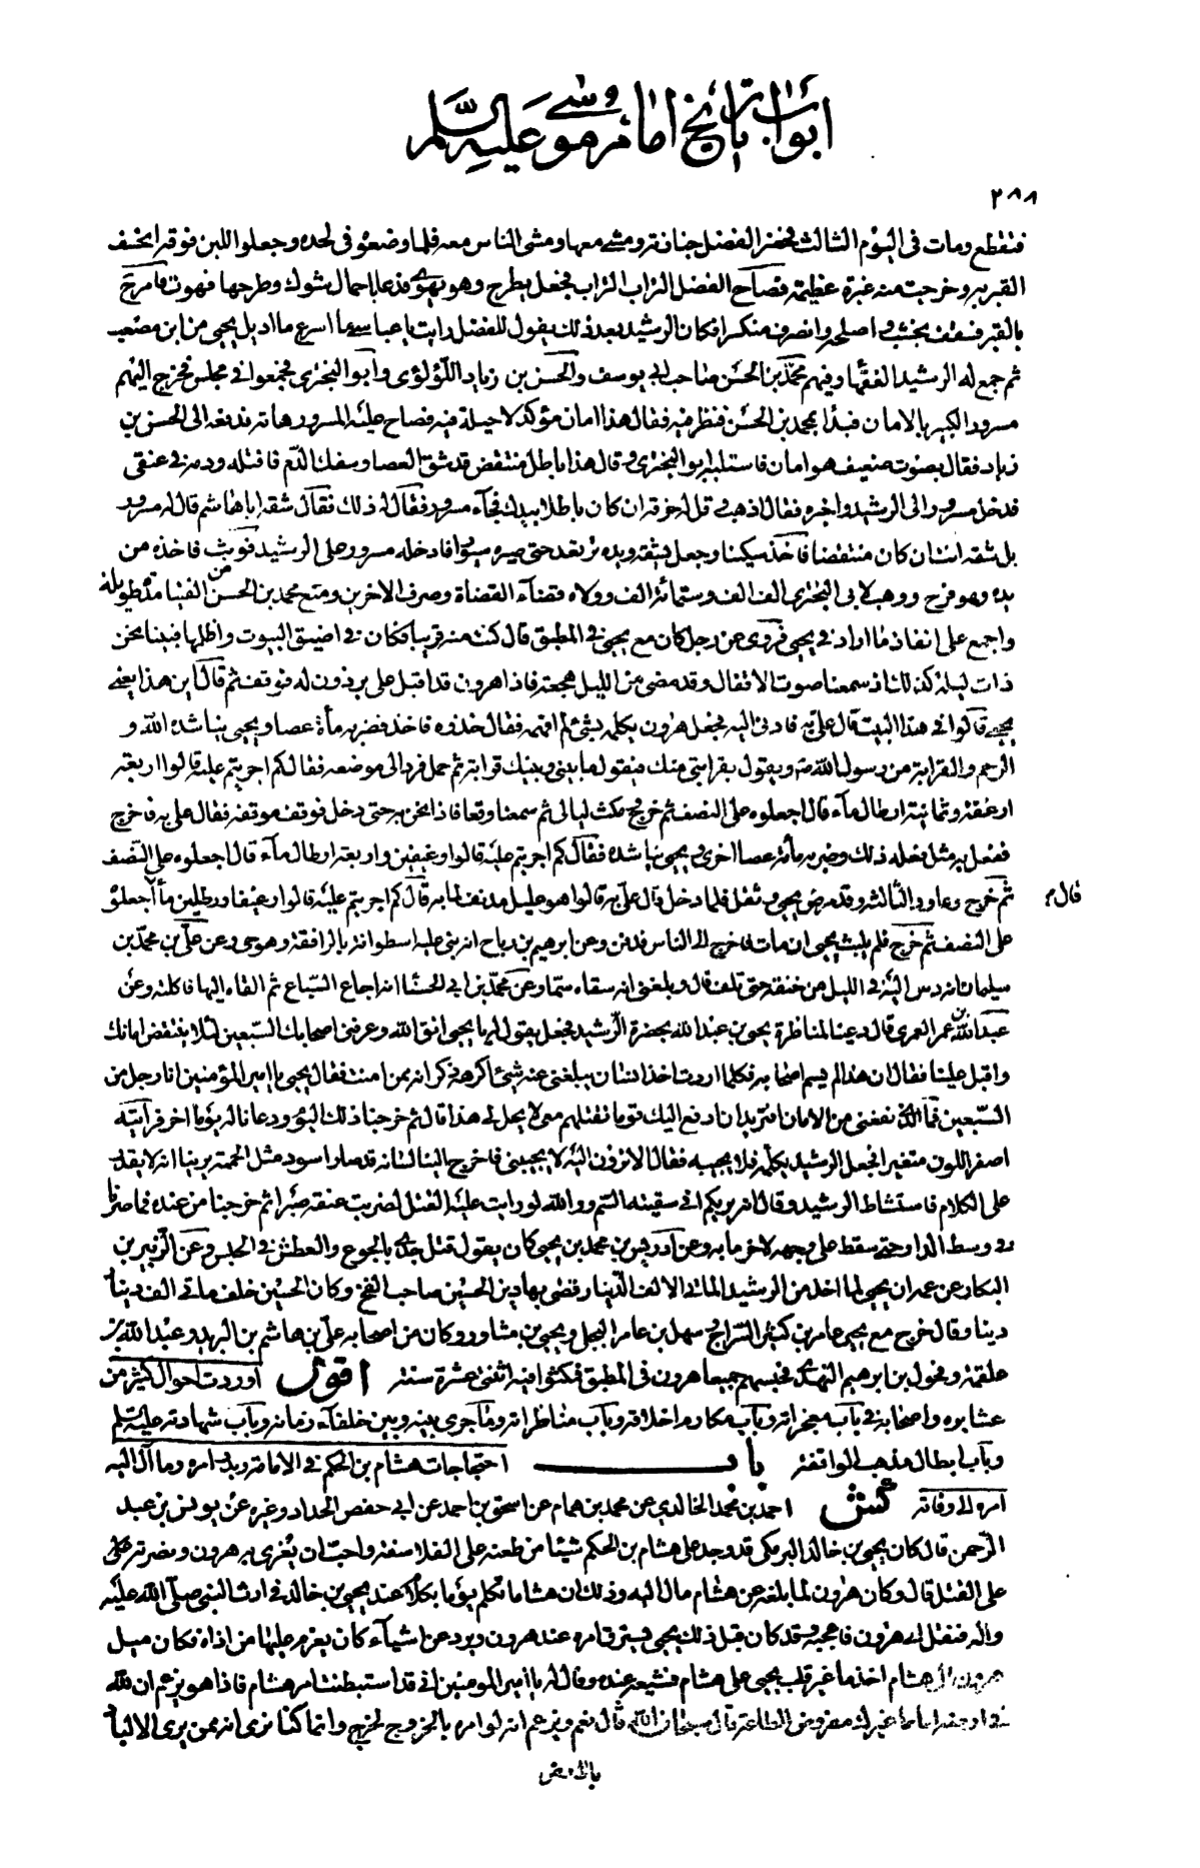 ابواب تاريخ امام موسى عليه السلام
٢٨٨
فتقطع ومات في اليوم الثالث فحضر الفضل جنازته ومشى معها ومشى الناس معه فلما وضعوه في لحده وجعلوا اللبن فوقه انخسف
القبر به وخرجت منه غبرة عظيمة فصاح الفضل التراب التراب فجعل يطرح وهو يهوى فدعا باحمال شوك وطرحها فهوت فامر ح
بالقبر فسقف بخشب و اصلحه وانصرف منكسرا فكان الرشيد بعد ذلك يقول للفضل رايت يا عباسى ما اسرع ما اديل يحيى من ابن مصعب
ثم جمع له الرشيد الفقهاء وفيهم محمد بن الحسن صاحب ابي يوسف والحسن بن زياد اللؤلؤى وابو البخترى فجمعوا في مجلس فخرج اليهم
مسرور الكبير بالامان فبدأ بمحمد بن الحسن فنظر فيه فقال هذا امان مؤكد لا حيلة فيه فصاح عليه المسرور هاته فدفعه الى الحسن بن
زياد فقال بصوت ضعيف هو امان فاستلبه ابو البخترى وقال هذا باطل منتقض قد شق العصا وسفك الدم فاقتله ودمه في عنقى
فدخل مسرور الى الرشيد واخبره فقال اذهب و قل له خرقه ان كان باطلا بيدك فجاء مسرور فقال له ذلك فقال شقه ابا هاشم قال له مسرور
بل شقه انت ان كان منتقضا فاخذ سكينا وجعل يشقه ويده ترتعد حتى صيره سيورا فادخله مسرور على الرشيد فوثب فاخذه من
يده وهو فرح ووهب لابى البخترى الف الف وستمائة الف وولاه قضاء القضاة وصرف الاخرين ومنع محمد بن الحسن من الفتيا مدة طويلة
واجمع على انفاذ ما اراد في يحيى فروى عن رجل كان مع يحيى في المطبق قال كنت منه قريبا فكان في اضيق البيوت واظلمها فبينا نحن
ذات ليلة كذلك اذ سمعنا صوت الاقفال وقد مضى من الليل هجعة فاذا هرون قد اقبل على برذون له فوقف ثم قال اين هذا يعني
يحيى قالوا في هذا البيت قال على به فادنى اليه فجعل هرون يكلمه بشئ لم افهمه فقال خذوه فاخذ فضربه مأة عصا و يحيى يناشده الله و
الرحم والقرابة من رسول الله ص ويقول بقرابتى منك فيقول ما بيني وبينك قرابة ثم حمل فرد الى موضعه فقال كم اجريتم عليه قالوا اربعة
ارغفة وثمانية ارطال ماء قال اجعلوه على النصف ثم خرج و مكث ليالي ثم سمعنا وقعا فاذا نحن به حتى دخل فوقف موقفه فقال على به فاخرج
ففعل به مثل فعله ذلك وضربه مأة عصا اخرى و يحيى يناشده فقال كم اجريتم عليه قالوا رغيفين واربعة ارطال ماء قال اجعلوه على النصف
ثم خرج وعاود الثالثة وقد مرض يحيى و ثقل فلما دخل قال على به قالوا هو عليل مدنف لما به قال كم اجريتم عليه قالوا رغيفا ورطلين ماء قال اجعلوه
قال م
على النصف ثم خرج فلم يلبث يحيى ان مات فاخرج الى الناس فدفن وعن ابرهيم بن رياح انه بنى عليه اسطوانة بالرافقة وهو حى وعن على بن محمد بن
سليمان انه دس اليه في الليل من خنقه حتى تلف قال وبلغنى انه سقاه سما وعن محمد بن ابي الحسنا انه اجاع السباع ثم القاه اليها فاكلته وعن
عبد الله بن عمر العمرى قال دعينا لمناظرة يحيى بن عبد الله بحضرة الرشيد فجعل يقول له يا يحيى اتق الله وعرفنى اصحابك السبعين لئلا ينتقض امانك
واقبل علينا فقال ان هذا لم يسم اصحابه فكلما اردت اخذ انسان يبلغنى عنه شئ اكرهه ذكر انه ممن امنت فقال يحيى يا امير المؤمنين انا رجل من
السبعين فما الذى نفعنى من الامان افتريد ان ادفع اليك قوما تقتلهم معى لا يحل لي هذا قال ثم خرجنا ذلك اليوم ودعانا له يوما اخر فرأيته
اصفر اللون متغيرا فجعل الرشيد يكلمه فلا يجيبه فقال الا ترون اليه لا يجيبنى فاخرج الينا لسانه قد صار اسود مثل الحممة يرينا انه لا يقدر
على الكلام فاستشاط الرشيد وقال انه يريكم انى سقيته السم ووالله لو رايت عليه القتل لضربت عنقه صبرا ثم خرجنا من عنده فما صرنا
في وسط الدار حتى سقط على وجهه لاخر ما به وعن ادريس بن محمد بن يحيى كان يقول قتل جدى بالجوع والعطش في الحبس وعن الزبير بن
البكار عن عمه ان يحيى لما اخذ من الرشيد المأتى الالف الدينار قضى بها دين الحسين صاحب الفخ وكان الحسين خلف مأتى الف دينار
دينا وقال خرج مع يحيى عامر بن كثير السراج و سهل بن عامر البجلى و يحيى بن مساور وكان من اصحابه على بن هاشم بن البريد وعبد الله بن
علقمة ومخول بن ابرهيم النهدى فحبسهم جميعا هرون في المطبق فمكثوا فيه اثنتى عشرة سنة اقول اوردت احوال كثير من
عشايره واصحابه في باب معجزاته وباب مكارم اخلاقه وباب مناظراته وما جرى بينه وبين خلفاء زمانه وباب شهادته عليه السلم
وباب ابطال مذهب الواقفة باب احتجاجات هشام بن الحكم في الامامة وبدو امره وما آل اليه
امره الى وفاته كش احمد بن محمد الخالدي عن محمد بن همام عن اسحق بن احمد عن ابي حفص الحداد وغيره عن يونس بن عبد
الرحمن قال كان يحيى بن خالد البرمكى قد وجد على هشام بن الحكم شيئا من طعنه على الفلاسفة واحب ان يغرى به هرون ونصرته على
على القتل قال وكان هرون لما بلغه عن هشام مال اليه وذلك ان هشاما تكلم يوما بكلام عند يحيى بن خالد في ارث النبي صلى الله عليه
واله فنقل الى هرون فاعجبه وقد كان قبل ذلك يحيى يسترق امره عند هرون ويرد عن اشياء كان يعزم عليها من اذاه فكان ميل
هرون الى هشام احد ما غير قلب يحيى على هشام فشيعه عنده وقال له يا امير المومنين انى قد استبطنت امر هشام فاذا هو يزعم ان لله
في ارضه اماما غيرك مفروض الطاعة قال سبحان الله قال نعم ويزعم انه لو امره بالخروج لخرج وانما كنا نرى انه ممن يرى الالباد
بالارض